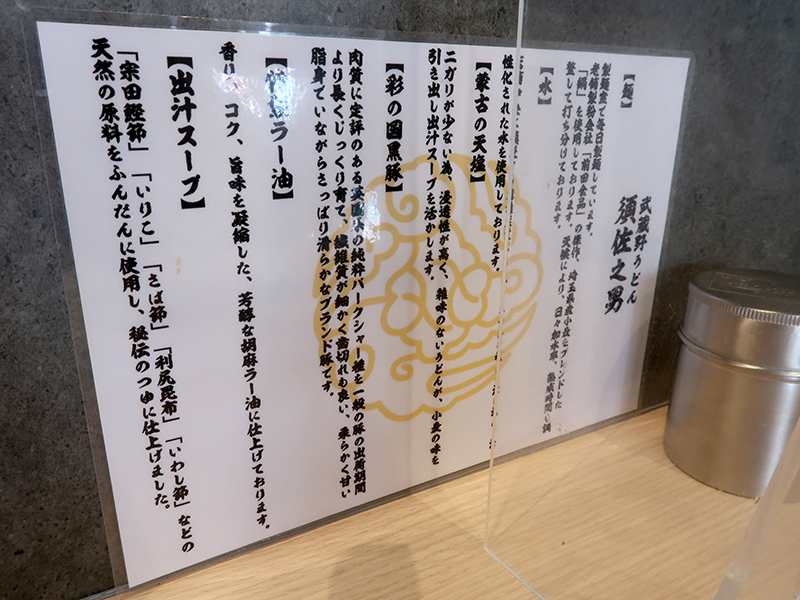 武蔵野うどん
須佐之男
【麺】
製麺室で毎日製麺しています。
老舗製粉会社「前田食品」の傑作、埼玉県産小麦をブレンドした
「絹」を使用しております。天候により、日々加水率、熟成時間を調
整して打ち分けております。
【水】
性化された水を使用しております。
【蒙古の天塩】
ニガリが少ない為、浸透性が高く、雑味のないうどんが、小麦の味を
引き出し出汁スープを活かします。
【彩の国黒豚】
肉質に定評のある英国系の純粋バークシャー種を一般の豚の出荷期間
より長くじっくり育て、繊維質が細かく歯切れも良い、柔らかく甘い
脂身でいながらさっぱり滑らかなブランド豚です。
ラー油】
香り、コク、旨味を凝縮した、芳醇な胡麻ラー油に仕上げております。
【出汁スープ】
「宗田鰹節」「いりこ」「さば節」「利尻昆布」「いわし節」などの
天然の原料をふんだんに使用し、秘伝のつゆに仕上げました。